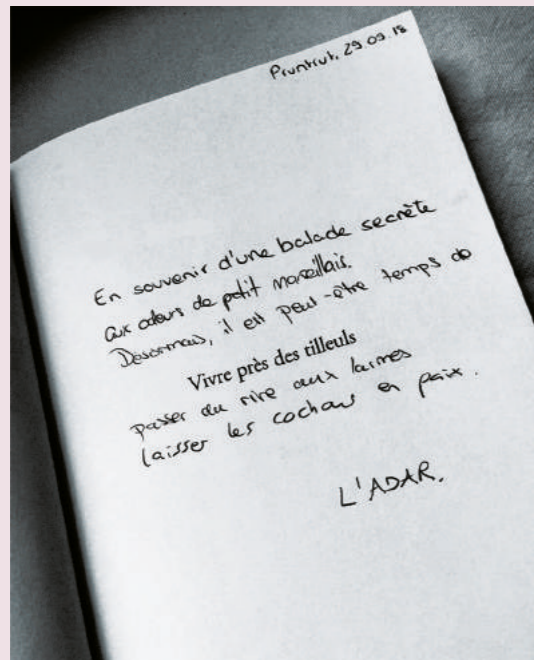 Pruntrut, 29.09.18
En souvenir d'une balade secrète
aux odeurs de petit marseillais.
Désormais, il est peut-être temps de
Vivre près des tilleuls
passer du rire aux larmes
laisser les cochons en paix.
L'ADAR.